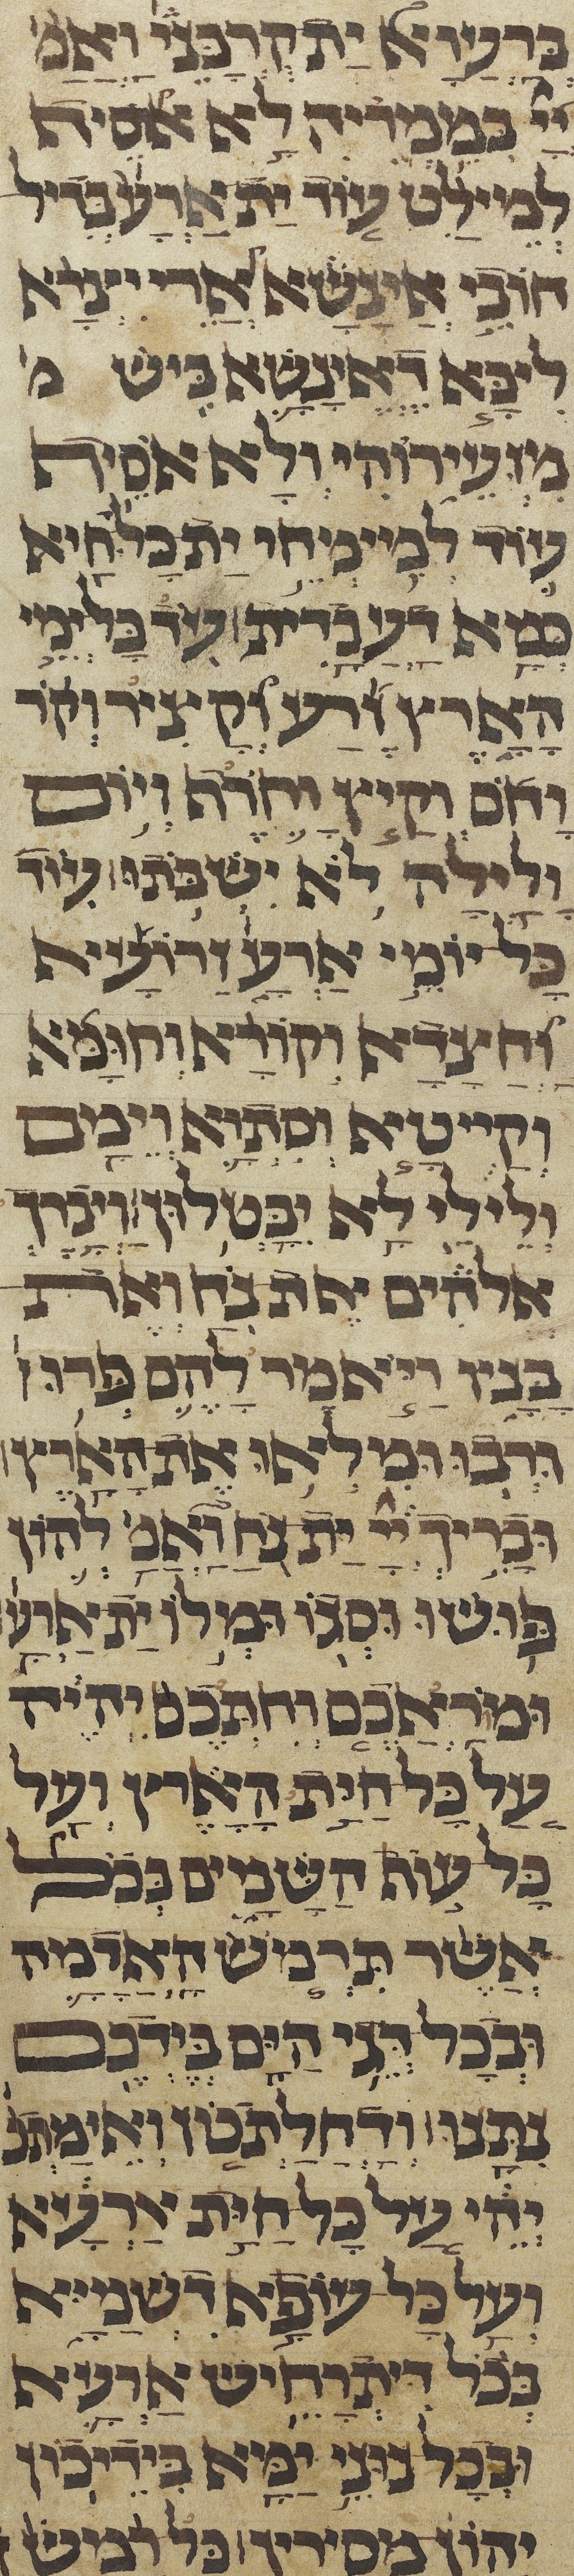 ברעוא ית קרבניה ואמ'
ייי במימריה לא אסיף
למילט עוד ית ארעא בדיל
חובי אינשא ארי יצרא
ליבא דאינשא ביש מ
מזעירוהי ולא אסיף
עוד לממחי ית כל חיא
כמא דעבדית עד כל ימי
הארץ זרע וקציר וקר
וחם וקיץ וחרף ויום
ולילה לא ישבתו עוד
כל יומי ארעא זרועא
וחצדא וקורא וחומא
וקייטא וסתוא וימם
ולילי לא יבטלון ויברך
אלהים את נח ואת
בניו ויאמר להם פרו
ורבו ומלאו את הארץ
ובריך ייי ית נח ואמ' להון
פושו וסגו ומלו ית ארעא
ומוראכם וחתכם יהיה
על כל חית הארץ ועל
כל עוף השמים בכל
אשר תרמש האדמה
ובכל דגי הים בידכם
נתנו ודחלתכון ואימתכ'
יהי על כל חית ארעא
ועל כל עופא דשמיא
בכל דיתרחיש ארעא
ובכל נוני ימא בידיכון
יהון מסירין כל רמש